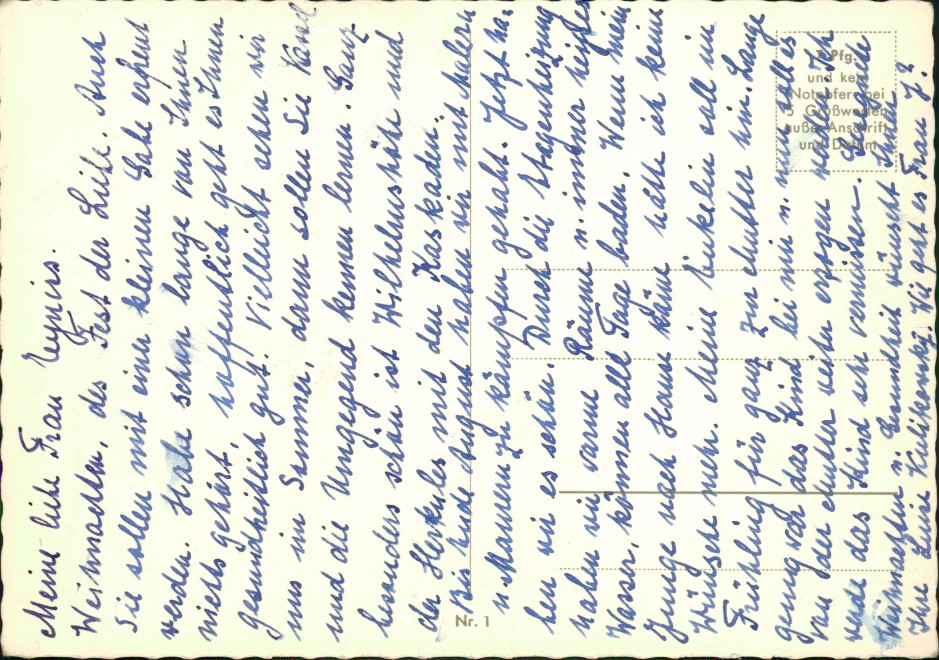 Meine liebe Frau
Weihnachten, des Fest der Liebe. Auch
Sie sollen mit einer kleinen Gabe erfreut
werden. Hatte schon lange von Ihnen
nichts gehört, hoffentlich geht es Ihnen
gesundheitlich gut. Vielleicht sehen wir
uns im Sommer, dann sollen Sie Kassel
und die Umgegend kennen lernen. Ganz
besonders schön ist Wilhelmshöhe und
der Herkules mit den Kaskaden.
Bis Ende August haben wir mit Malern
u. Maurern zu kämpfen gehabt. Jetzt ha-
ben wir es schön. Durch die Etagenheizung
haben wir warme Räume u. immer heißes
Wasser, können alle Tage baden. Wenn mein
Junge nach Hause käme hätte ich keine
Wünsche mehr. Meine Enkelin soll im
Frühling für ganz zur Mutter hin. Lange
genug war das Kind bei mir u. nun soll es
von der Mutter weiter erzogen werden. Ich
werde das Kind sehr vermissen.
Weihnachten u. Gesundheit wünscht Ihnen
Ihre Wie geht es Frau J.?
Pfg.
und kein
Notopfer bei
5 Grußworten
außer Anschrift
und Datum
Nr. 1